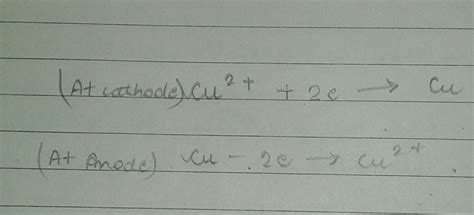 (At cathode) Cu²⁺ + 2e → Cu
(At Anode) Cu - 2e → Cu²⁺